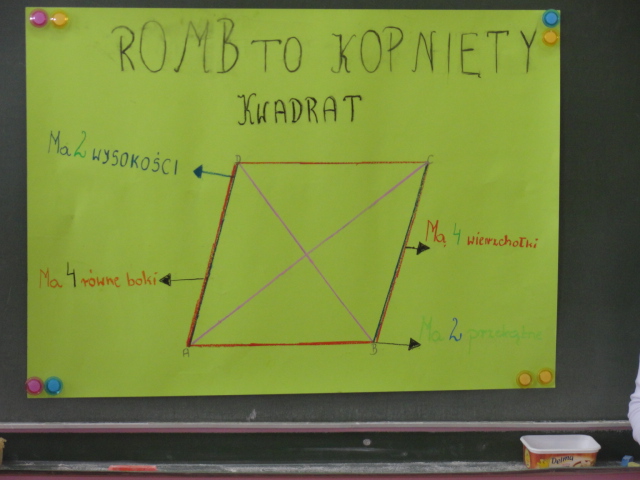 ROMB TO KOPNIĘTY
KWADRAT
Ma 2 wysokości
D
C
Mą 4 wierzchołki
Ma 4 równe boki
Ma 2 przekątne
A
B
Delma